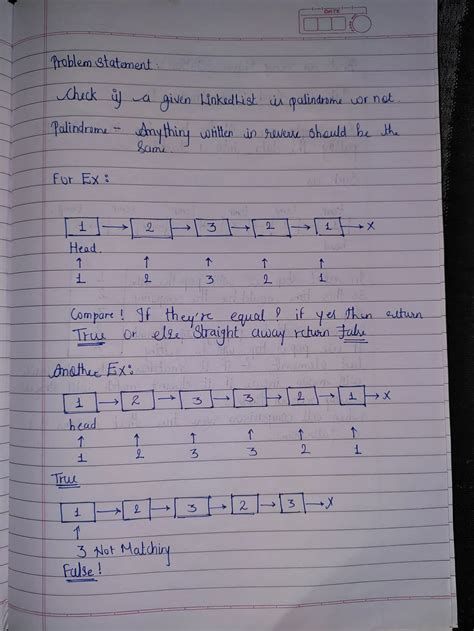 DATE
Problem Statement:
Check if a given LinkedList is palindrome or not.
Palindrome - Anything written in reverse should be the
Same.
For Ex:
1 → 2 → 3 → 2 → 1 → X
Head
↑ ↑ ↑ ↑ ↑
1 2 3 2 1
Compare! If they're equal? if yes then return
True or else straight away return False
Another Ex:
1 → 2 → 3 → 3 → 2 → 1 → X
head
↑ ↑ ↑ ↑ ↑ ↑
1 2 3 3 2 1
True
1 → 2 → 3 → 2 → 3 → X
↑
3 Not Matching
False!